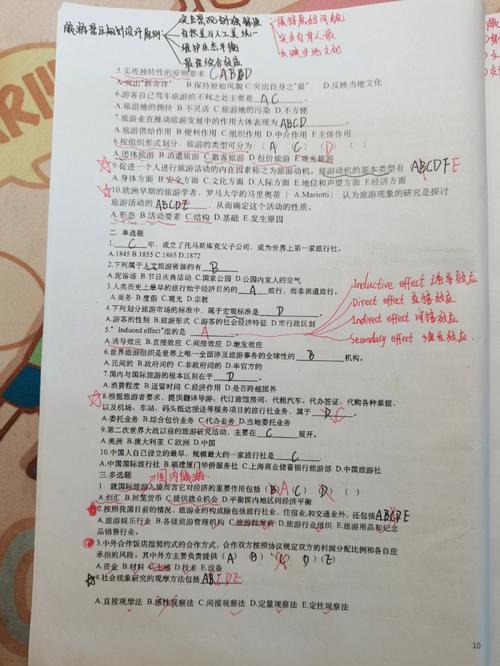 旅游景区规划设计原则
突出景观 创造最佳
自然美与人工美统一
维护生态平衡
最佳综合效应
保持原始风貌
突出自身之最
反映当地文化
5.实现独特性的原则要求（ABCDD
A.突出"新奇特" B.保持原始风貌 C.突出自身之"最" D.反映当地文化
6.游客自己驾车旅游的不利之处主要是 AC 。
A.旅游地的拥挤 B.不灵活 C.旅游地的污染 D.不方便
7.旅游业在推动旅游发展中的作用大体表现为 ABCD 。
A.旅游供给作用 B.便利作用 C.组织作用 D.中介作用 E.主体作用
8.按组织形式划分，旅游的类型可分为（A）（C）（D）
A.团体旅游 B.消遣旅游 C.散客旅游 D.包价旅游 E.观光旅游
9.促进一个人进行旅游活动的内在因素称之为旅游动机。旅游动机的基本类型有 ABCDFE
A.身体方面 B.安全方面 C.文化方面 D.人际方面 E.地位和声望方面 F.经济方面
10.欧洲早期的旅游学者，罗马大学的马里奥蒂（A.Mariotti）认为旅游现象的研究是探讨
旅游活动的 ABCDE ，从而确定这个活动的性质。
A.形态 B.活动要素 C.结构 D.基础 E.发生原因
二.单选题
1. C 年，成立了托马斯库克父子公司，成为世界上第一家旅行社。
A.1845 B.1855 C.1865 D.1872
2.下列属于人文旅游资源的有 B
A.泥浴场 B.节日庆典活动 C.国家公园 D.公园内宜人的空气
3.人类历史上最早的旅行始于经济目的的 A 旅行，而非消遣旅行。
A.商务 B.度假 C.观光 D.宗教
4.下列划分旅游市场的标准中，属于宏观标准的是 D 。
A.游客的性别 B.旅游形式 C.游客的社会经济特征 D.市行政区划
5." Induced effect"指的是 A 。
A.诱导效应 B.直接效应 C.间接效应 D.继发效应
Inductive effect 诱导效应
Direct effect 直接效应
Indirect effect 间接效应
Secondary effect 继发效应.
6.世界旅游组织是世界上唯一全面涉及旅游事务的全球性的 B 机构。
A.民间的 B.政府间的 C.非政府间的 D.半官方的
7.国内与国际旅游的根本区别在于 D 。
A.消费程度 B.逗留时间 C.经济作用 D.是否跨越国界
8.根据旅游者要求，提供翻译导游、代订旅馆房间、代租汽车、代办签证、代购各种票据、
以及机场、车站、码头抵达接送等服务项目的旅行社业务，属于 D C
A.委托业务 B.综合包价业务 C.代办业务 D.当地委托业务
9.第二次世界大战以前的旅游研究活动，主要在 C 展开。
A.美洲 B.澳大利亚 C.欧洲 D.中国
10.中国人自己设立的最早，规模最大的一家旅行社是 C
A.中国国际旅行社 B.福建厦门华侨服务社 C.上海商业储蓄银行旅游部 D.中国旅游社
三.多选题
国内旅游
1. 就国际旅游入境而言它对经济的重要作用包括（B）A（C）（D）（
A.创汇 B.回笼货币 C.提供就业机会 D.平衡国内地区间经济平衡
2.按照我国目前的情况，旅游业的构成除包括旅行社业、住宿业和交通业外，还包括 ABCDE
A.旅游娱乐行业 B.各级旅游管理机构 C.旅游批发商 D.旅游行业组织 E.旅游用品和纪念
品销售行业。
3.中外合作饭店指契约式的合作方式，合作双方按照协议规定双方的利润分配比例和各自应
承担的风险，其中外方主要负责提供（A）（B）（C）（D）（E）
A.资金 B.材料 C.土地 D.技术 E.设备
4.社会现象研究的观摩方法包括 ABCDE
A.直接观摩法 B.感性观察法 C.间接观察法 D.定量观察法 E.定性观察法
10